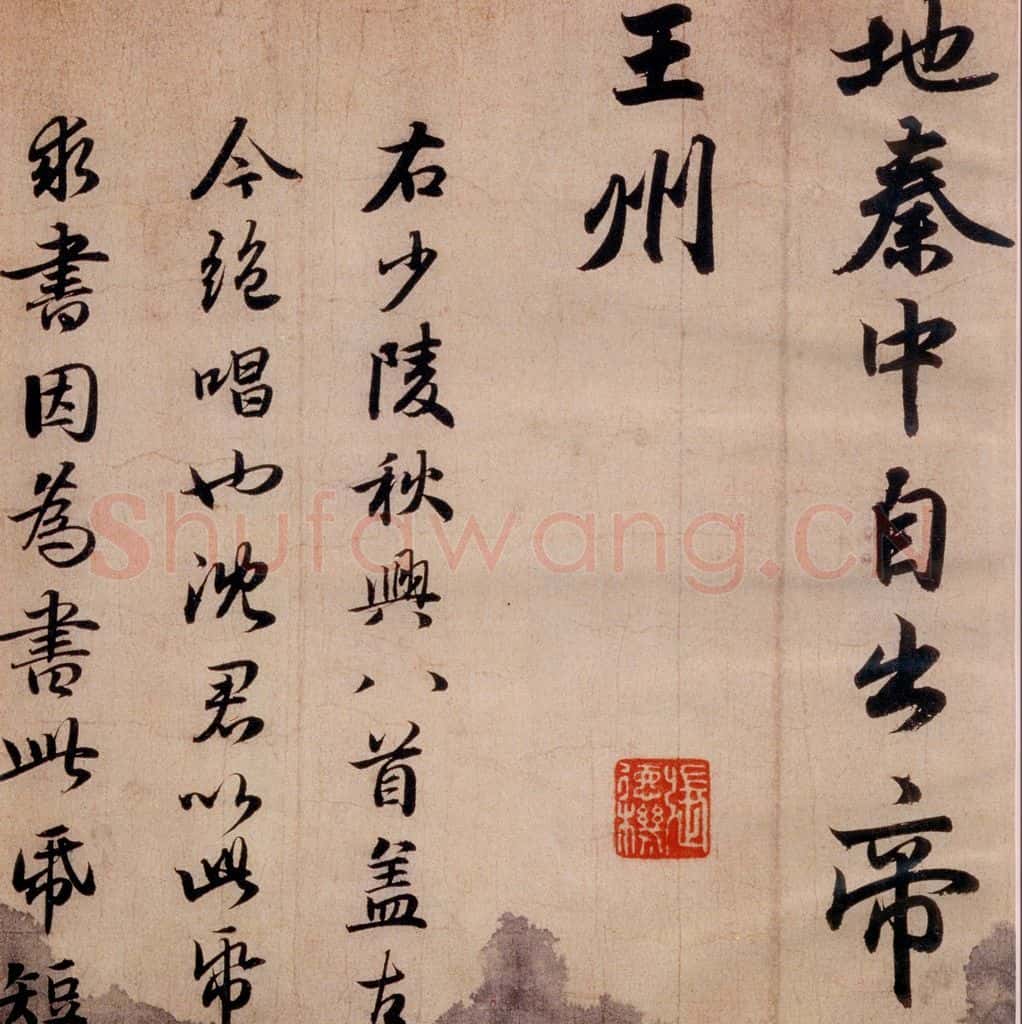 地秦中自出帝
王州
右少陵秋興八首盖古
今絶唱也沈君以此帋
求書因為書此帋短
張德機
Shufawang.cn